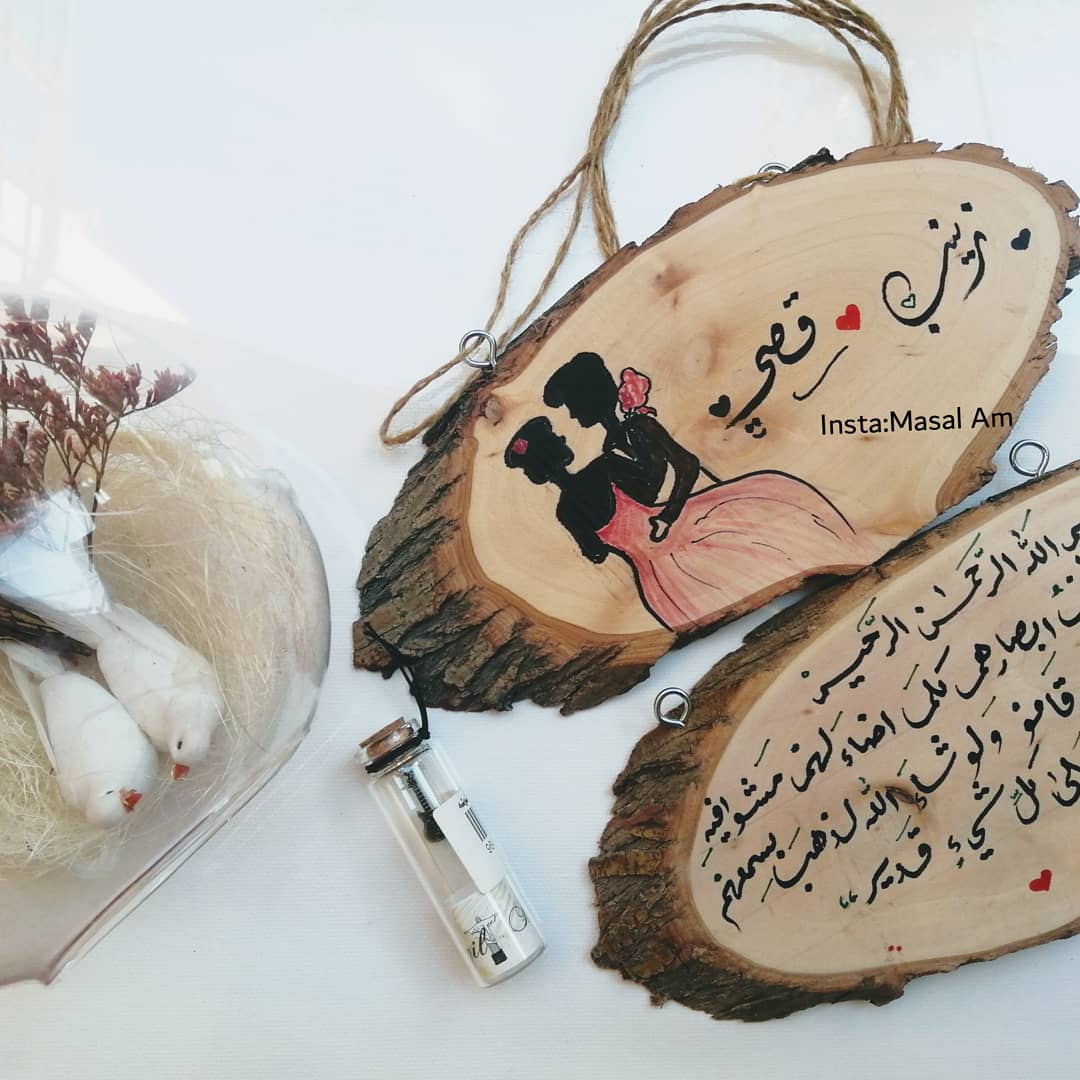 زينب
قصي
Insta:Masal Am
الله الرَّحمان الرحَيم
ابصارهم كلَما اضاءَ لَهُم مَشَو افيهِ
قَامُو وَلو شاَءَ اللَّه لذهَبَ بسمعهم
كلِّ شَيءٍ قَدير “